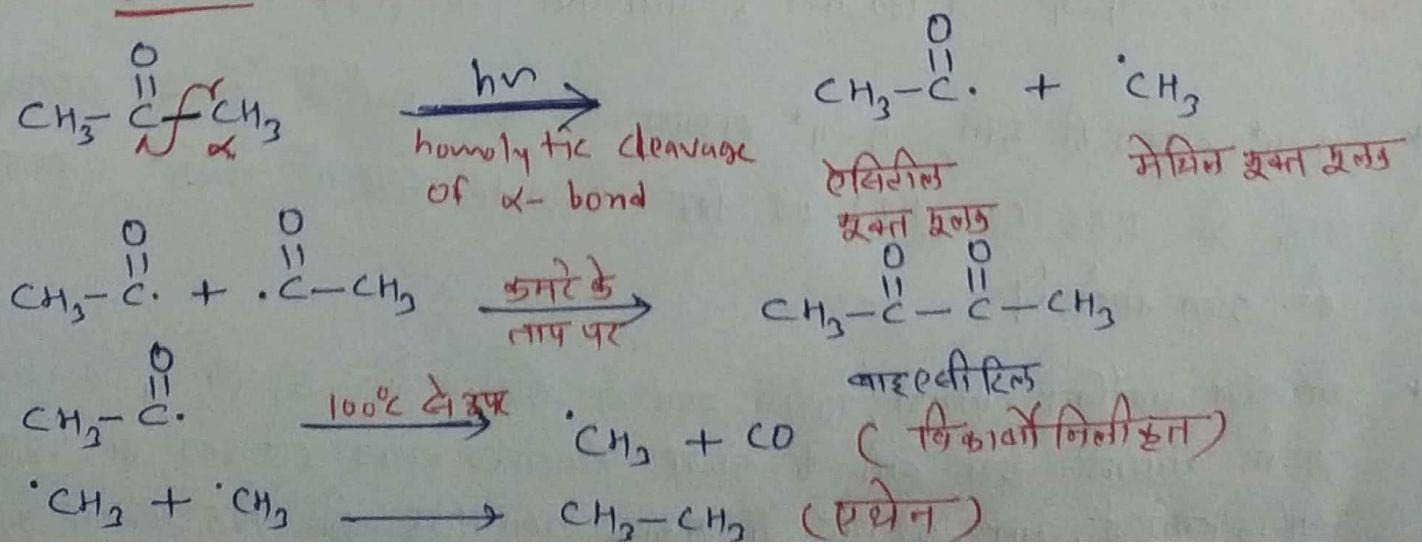 O O
CH₃-C-CH₃ hν CH₃-C· + ·CH₃
α homolytic cleavage of α-bond ऐसिटील मुक्त मूलक मेथिल मुक्त मूलक
O O O O
CH₃-C· + ·C-CH₃ कमरे के ताप पर CH₃-C-C-CH₃
O बाइएसीटिल
CH₃-C· 100°C से ऊपर ·CH₃ + CO (विकार्बोनिलीकृत)
·CH₃ + ·CH₃ → CH₃-CH₃ (एथेन)